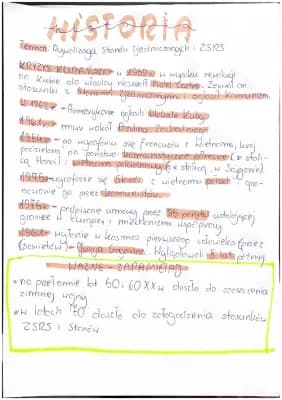 HISTORIA
Temat: Rywalizacja Stanów Zjednoczonych i ZSRS
KRYZYS KUBAŃSKI - w 1959 w wyniku rewolucji
na Kubie do władzy doszedł Fidel Castro. Zerwał on
stosunki z Stanami Zjednoczonymi i ogłosił komunizm
1962 r - Amerykanie ogłosili blokadę Kuby
1961 r - mur wokół Berlina Zachodniego
1954 r - po wycofaniu się Francuzów z Wietnamu, kraj
podzielono na państwo komunistyczne północne (z stoli-
cą Hanoi) i wietnam południowy (z stolicą w Sajgonie)
1975 - wycofanie się Stanów z wietnamu połud i opa-
nowanie go przez komunistów
1975 r - podpisanie umowy przez 35 państw ustalającej
granice w Europie i mechanizmu współpracy
1961 - wysłanie w kosmos pierwszego człowieka (przez
sowietów) - Jurija Gagarina. Wylądowali 8 lat później
WAŻNE - ZAPAMIĘTAJ
• na przełomie lat 50 i 60 XX w doszło do zaostrzenia
zimnej wojny
• w latach 70 doszło do złagodzenia stosunków
ZSRS i Stanów